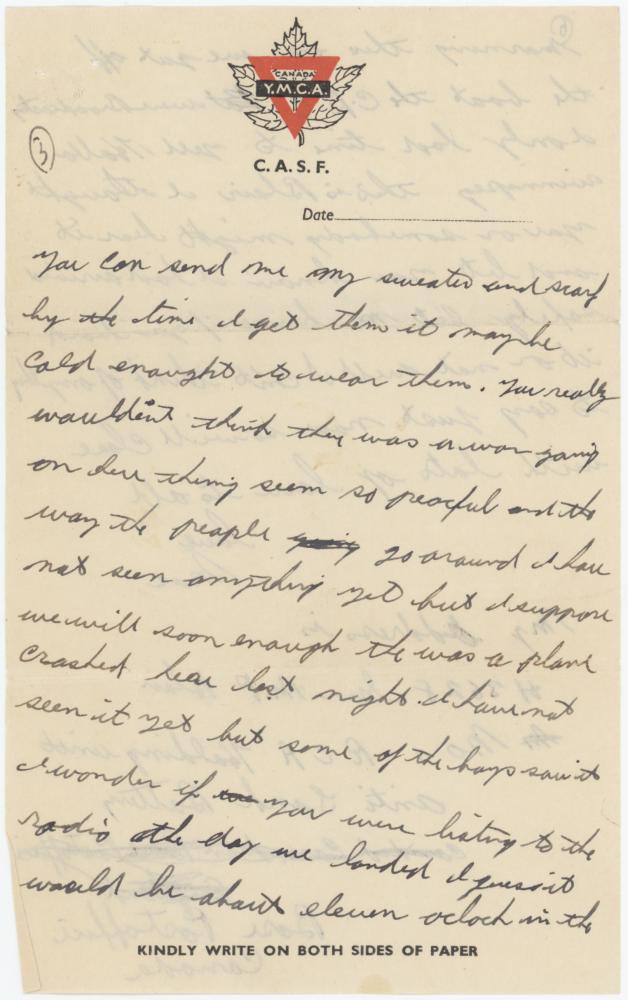 CANADA
Y.M.C.A.
3
C.A.S.F.
Date
You can send me my sweater and scarf
by the time I get them it maybe
cold enought to wear them. You really
wouldent think they was a war going
on here things seem so peacful and the
way the people going go around I have
not seen anything yet but I suppose
we will soon enough the was a plane
crashed hear last night. I have not
seen it yet but some of the boys saw it
I wonder if you were listing to the
radio the day we landed I guess it
would be about eleven oclock in the
KINDLY WRITE ON BOTH SIDES OF PAPER